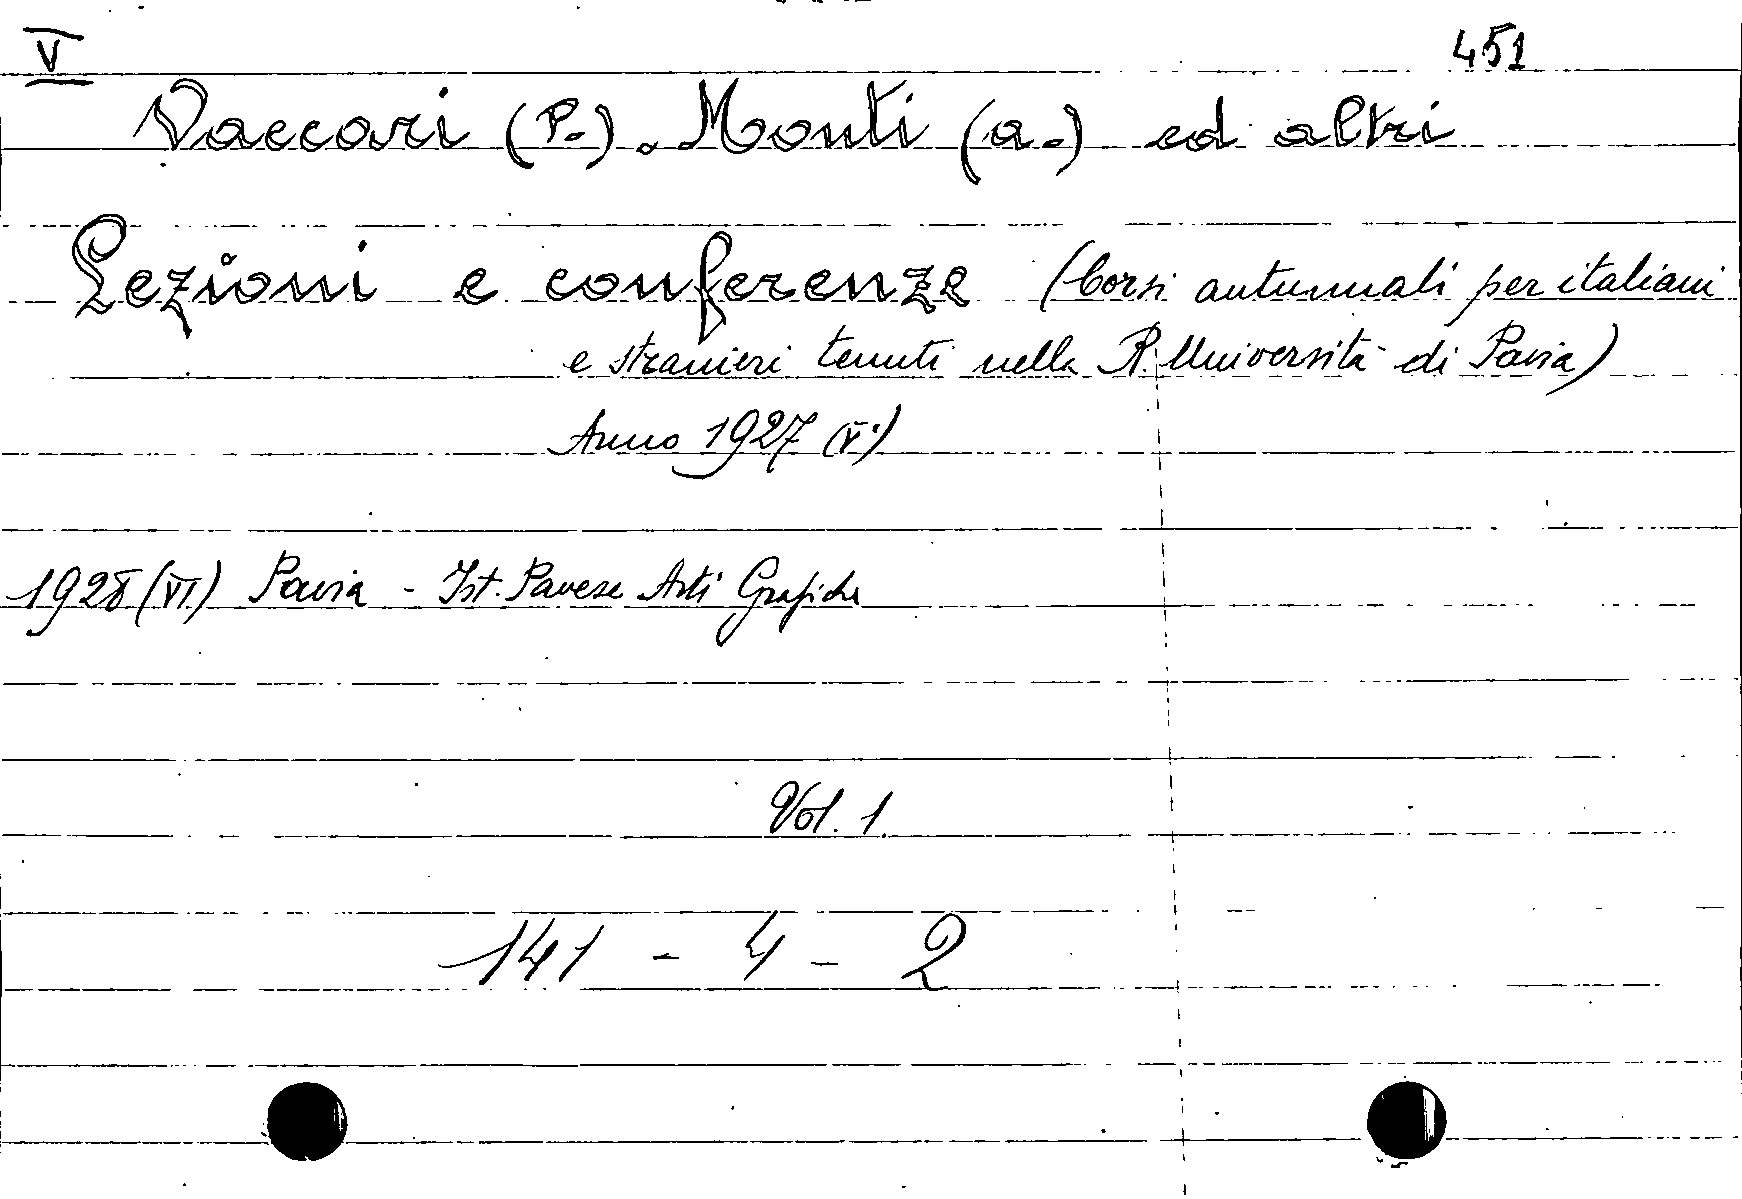 V 451
Vaccari (P.). Monti (A.) ed altri
Lezioni e conferenze (Corsi autunnali per italiani
e stranieri tenuti nella R. Università di Pavia)
Anno 1927 (V°)
1928 (VI) Pavia - Ist. Pavese Arti Grafiche
Vol. 1.
141 - 4 - 2